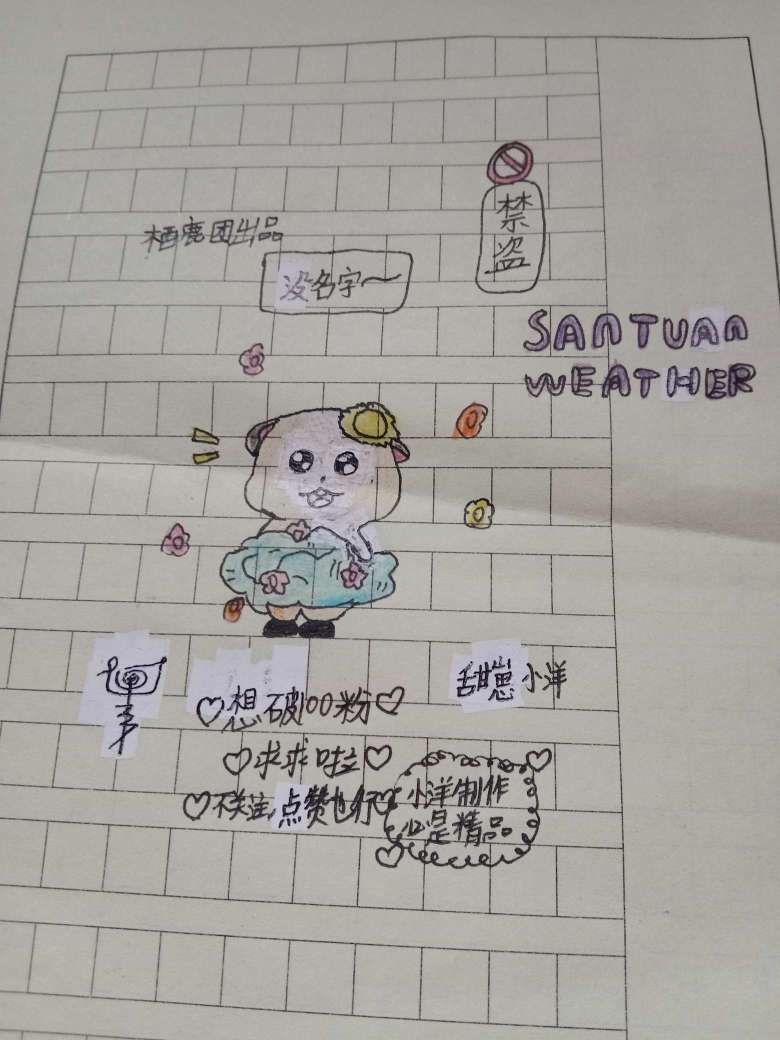 禁盗
栖鹿团出品
没名字~
SANTUAN
WEATHER
甜崽小洋
想破100粉
求求啦
不关注,点赞也行
小洋制作
必是精品